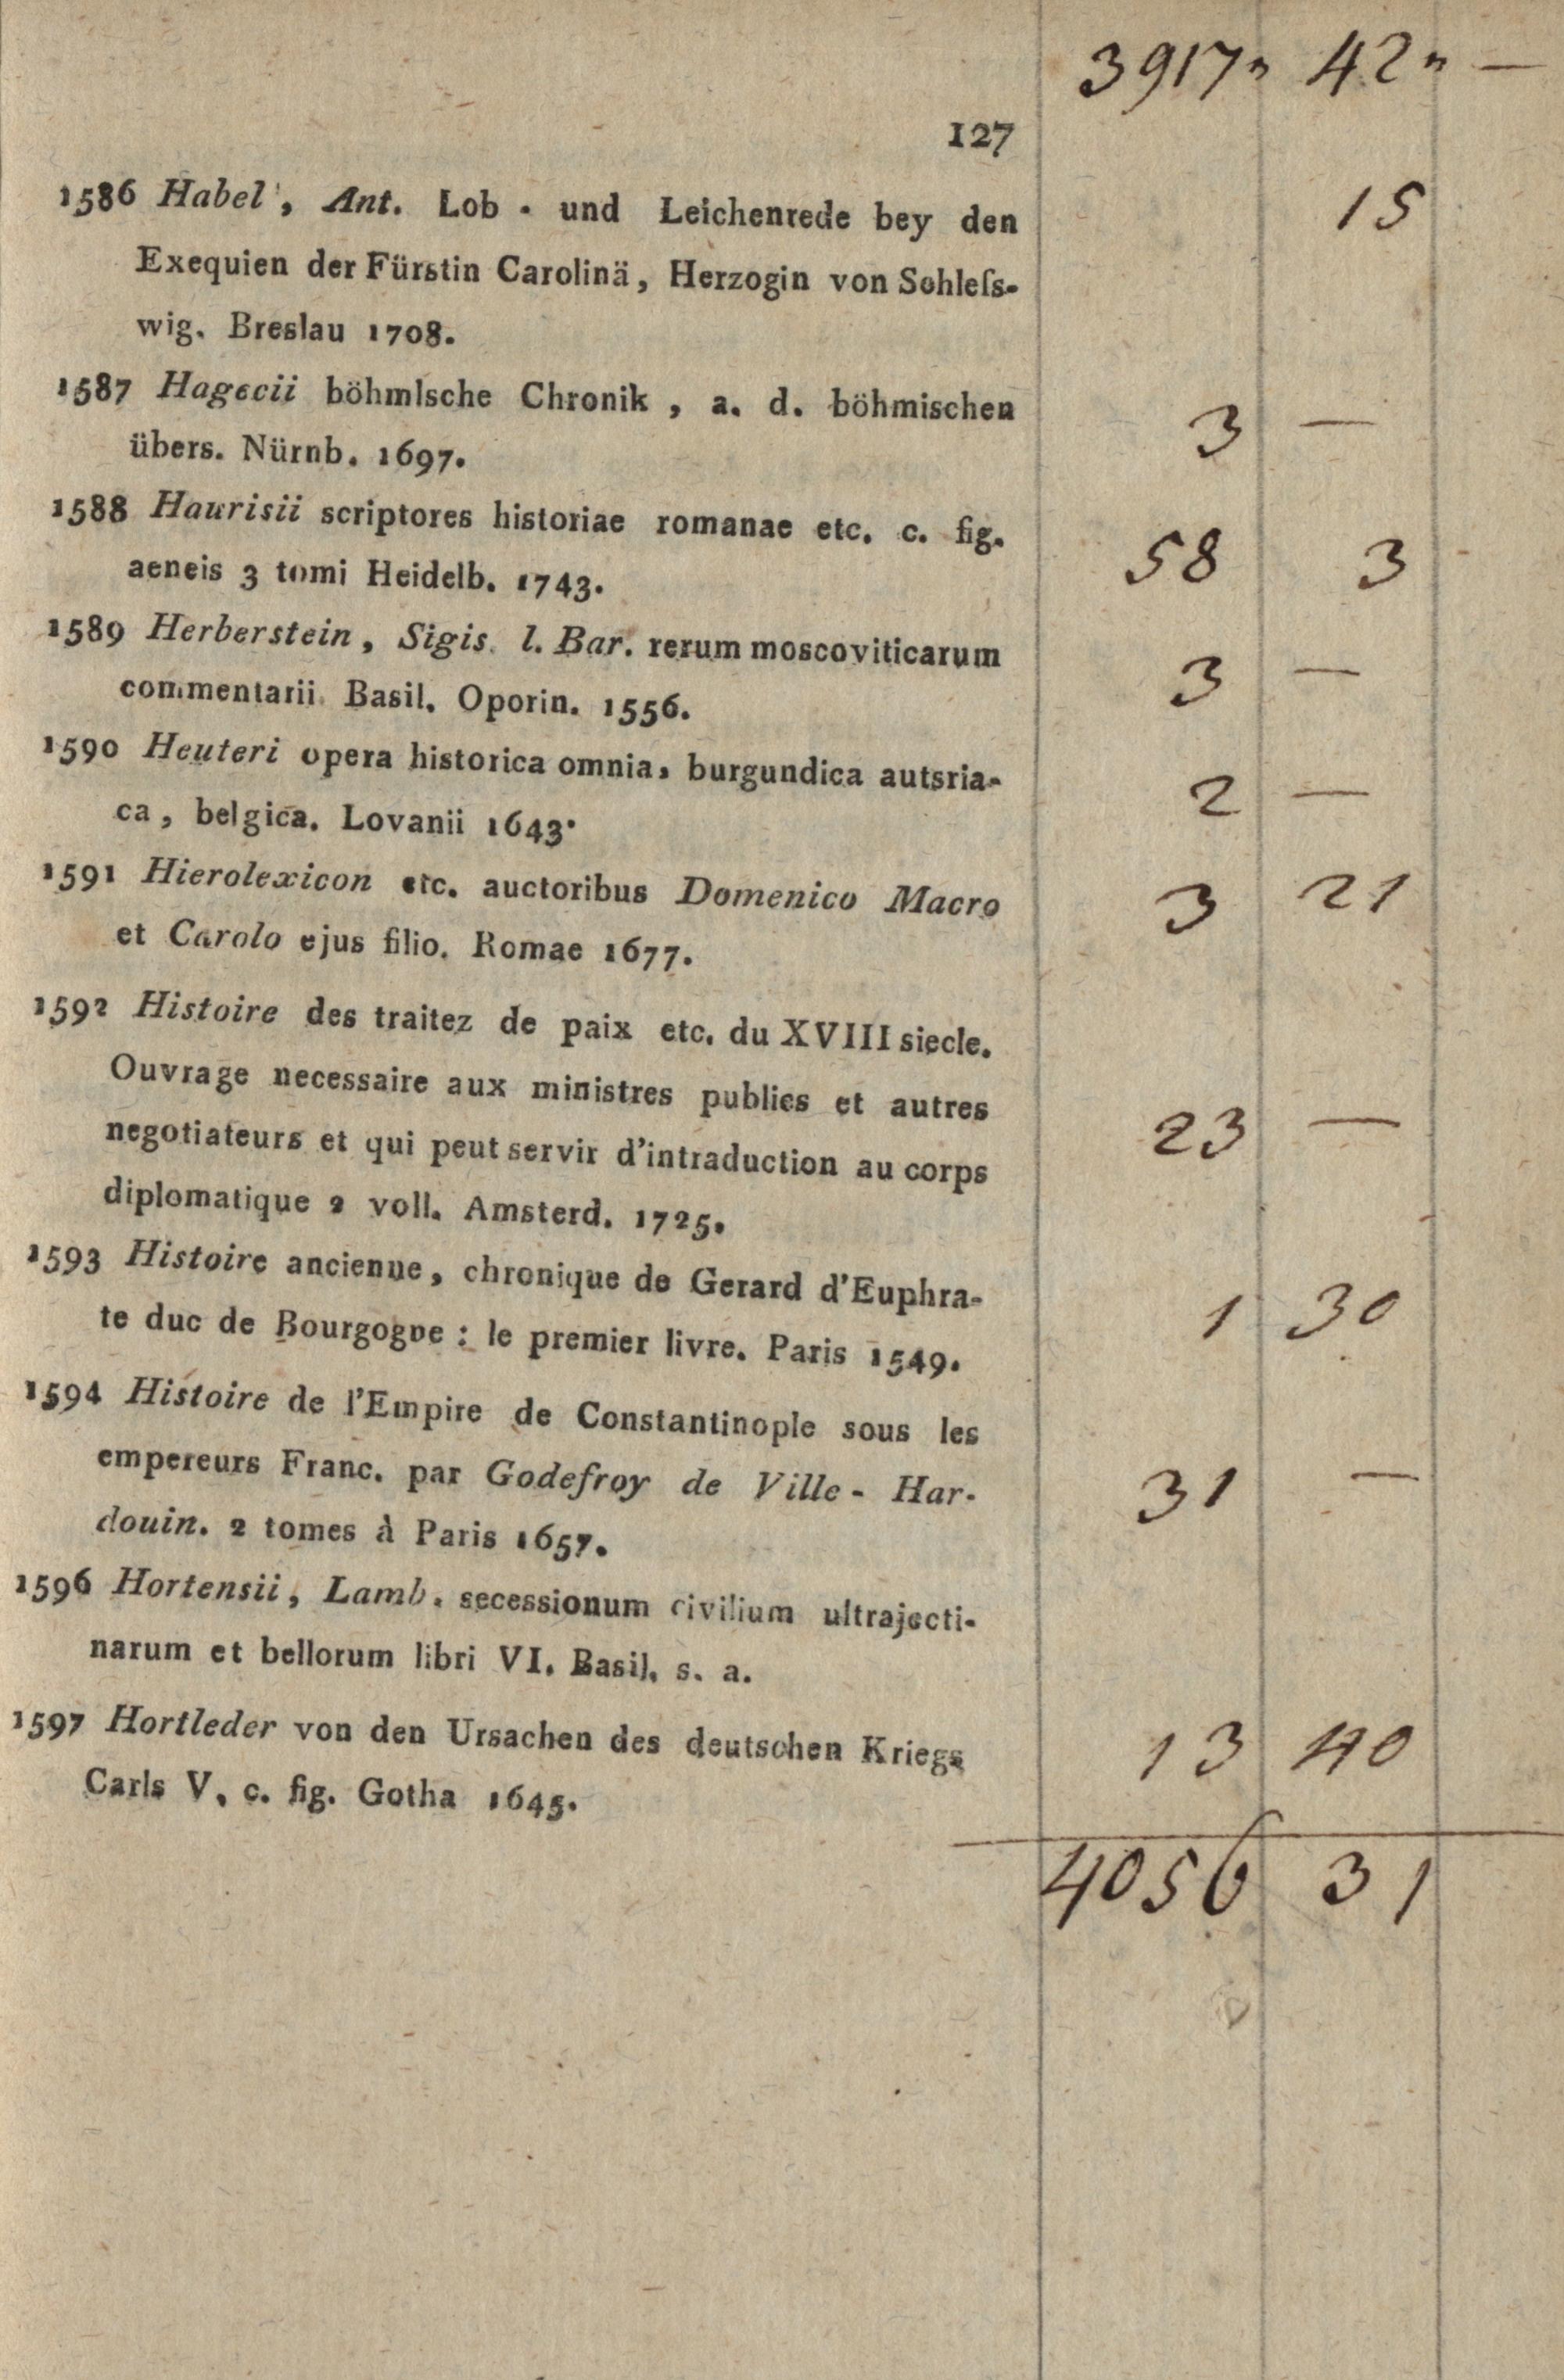 3917„ 42„ —
127
1586 Habel, Ant. Lob - und Leichenrede bey den 15
Exequien der Fürstin Carolinä, Herzogin von Sohleſs-
wig. Breslau 1708.
1587 Hagecii böhmlsche Chronik, a. d. böhmischen
übers. Nürnb. 1697. 3 —
1588 Haurisii scriptores historiae romanae etc. c. fig.
aeneis 3 tomi Heidelb. 1743. 58 3
1589 Herberstein, Sigis. l. Bar. rerum moscoviticarum
commentarii. Basil. Oporin. 1556. 3 —
1590 Heuteri opera historica omnia, burgundica autsria-
ca, belgica. Lovanii 1643. 2 —
1591 Hierolexicon etc. auctoribus Domenico Macro
et Carolo ejus filio. Romae 1677. 3 21
1592 Histoire des traitez de paix etc. du XVIII siecle.
Ouvrage necessaire aux ministres publies et autres
negotiateurs et qui peut servir d'intraduction au corps 23 —
diplomatique 2 voll. Amsterd. 1725.
1593 Histoire ancienne, chronique de Gerard d'Euphra-
te duc de Bourgogne : le premier livre. Paris 1549. 1 30
1594 Histoire de l'Empire de Constantinople sous les
empereurs Franc. par Godefroy de Ville - Har- 31 —
douin. 2 tomes à Paris 1657.
1596 Hortensii, Lamb. secessionum civilium ultrajecti-
narum et bellorum libri VI. Basil. s. a.
1597 Hortleder von den Ursachen des deutschen Kriegs 13 40
Carls V. c. fig. Gotha 1645.
4056 31